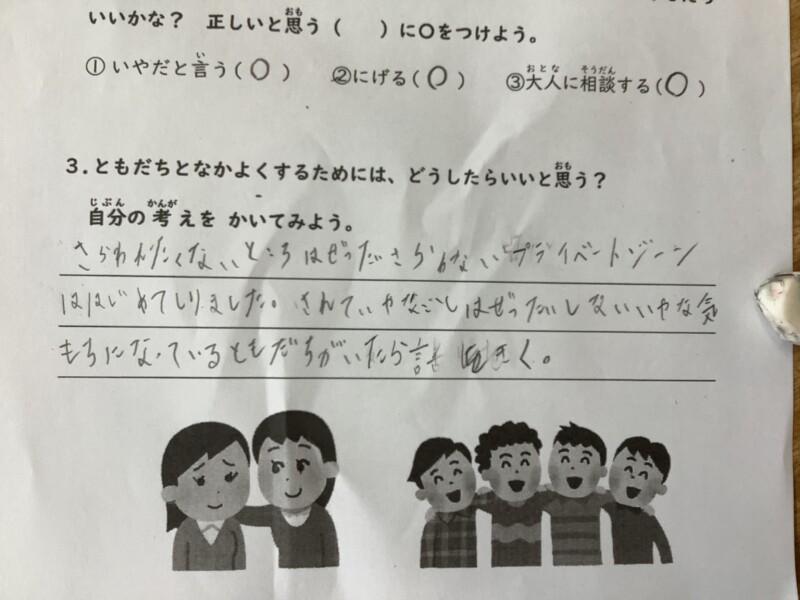 いいかな？ 正しいと思う（ ）に○をつけよう。
①いやだと言う（○） ②にげる（○） ③大人に相談する（○）
3.ともだちとなかよくするためには、どうしたらいいと思う？
自分の考えを かいてみよう。
さらわれたくないところはぜっださらわない プライベートゾーン
ははじめてしりました。 はぜったいしないいやな気
もちになっているともだちがいたら話をきく。